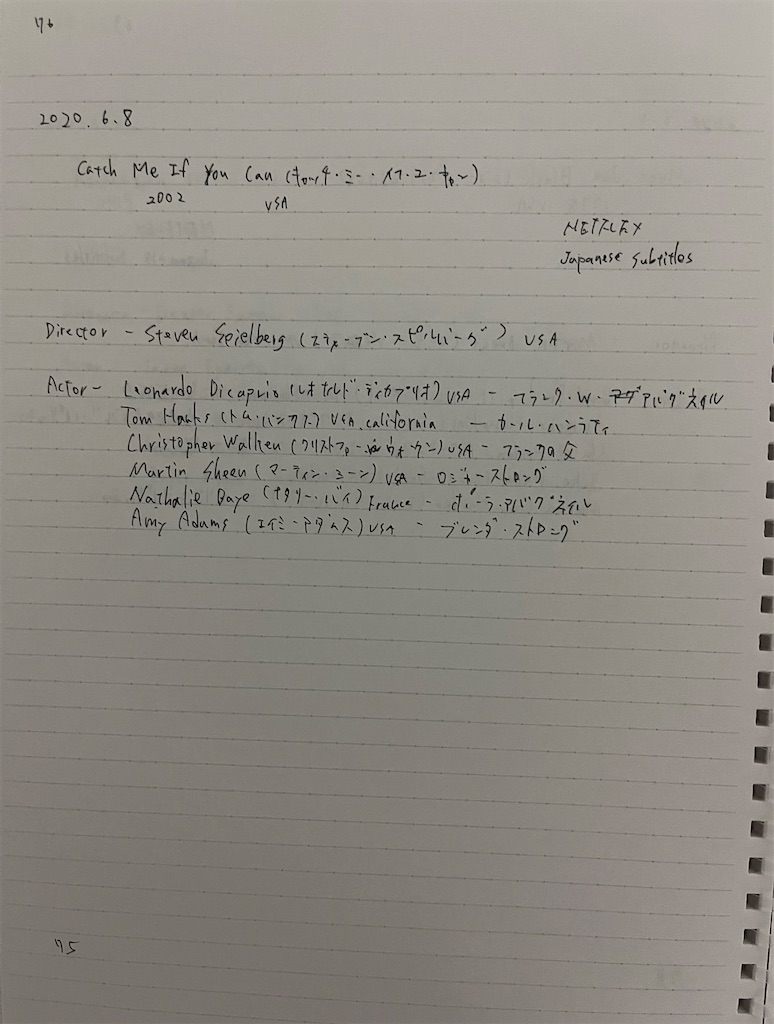 76
2020.6.8
Catch Me If You Can (キャッチ・ミー・イフ・ユー・キャン)
2002 USA
NETFLEX
Japanese Subtitles
Director - Steven Spielberg (スティーブン・スピルバーグ) USA
Actor - Leonardo Dicaprio (レオナルド・ディカプリオ) USA - フランク・W・アヴァバグネイル
Tom Hanks (トム・ハンクス) USA. california - カール・ハンラティ
Christopher Walken (クリストファー・ウォーケン) USA - フランクの父
Martin Sheen (マーティン・シーン) USA - ロジャーストロング
Nathalie Baye (ナタリー・バイ) France - ポーラ・アバグネイル
Amy Adams (エイミーアダムス) USA - ブレンダ・ストロング
75